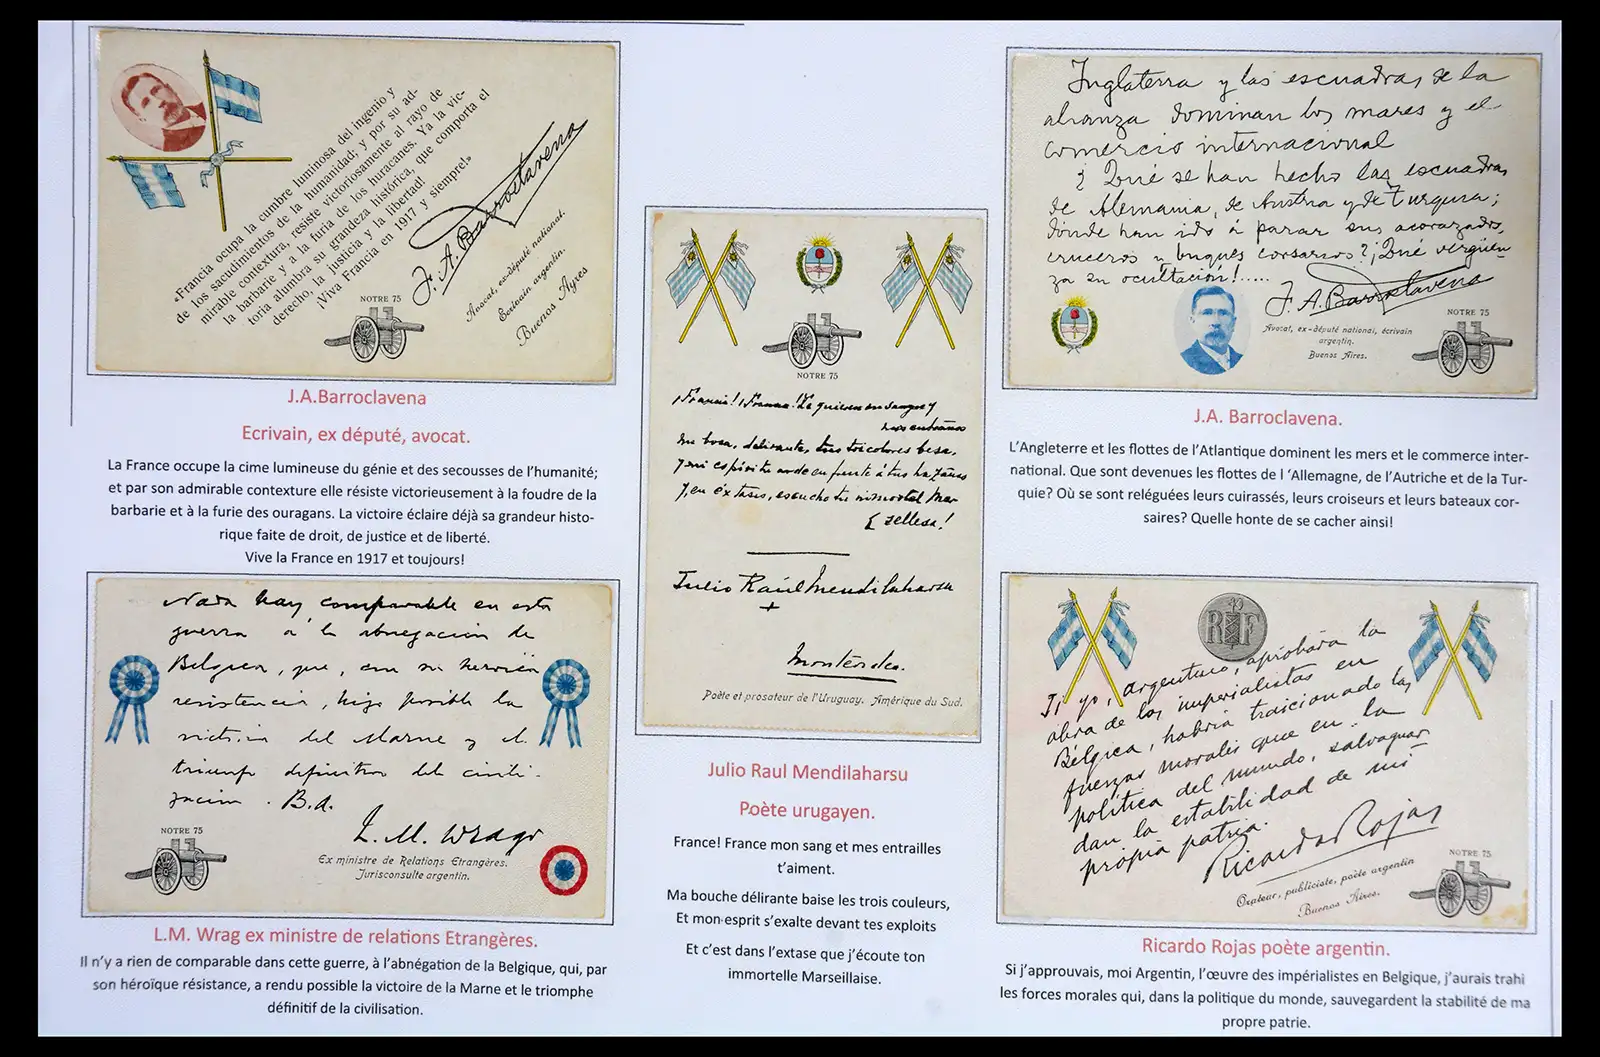 «Francia ocupa la cumbre luminosa del ingenio y
de los sacudimientos de la humanidad; y por su ad-
mirable contextura, resiste victoriosamente al rayo de
la barbarie y a la furia de los huracanes. Ya la vic-
toria alumbra su grandeza histórica, que comporta el
derecho, la justicia y la libertad!
¡Viva Francia en 1917 y siempre!»
J. A. Barroetavena
Avocat, ex-député national.
Ecrivain argentin.
Buenos Ayres
NOTRE 75
J.A.Barroclavena
Ecrivain, ex député, avocat.
La France occupe la cime lumineuse du génie et des secousses de l’humanité;
et par son admirable contexture elle résiste victorieusement à la foudre de la
barbarie et à la furie des ouragans. La victoire éclaire déjà sa grandeur histo-
rique faite de droit, de justice et de liberté.
Vive la France en 1917 et toujours!
Nada hay comparable en esta
guerra a la abnegación de
Bélgica, que, con su heroica
resistencia, hizo posible la
victoria del Marne y el
triunfo definitivo del civili-
zación. B.A.
L. M. Wrago
Ex ministre de Relations Etrangères.
Jurisconsulte argentin.
NOTRE 75
L.M. Wrag ex ministre de relations Etrangères.
Il n’y a rien de comparable dans cette guerre, à l’abnégation de la Belgique, qui, par
son héroïque résistance, a rendu possible la victoire de la Marne et le triomphe
définitif de la civilisation.
NOTRE 75
¡Francia! ¡Francia! Te quieren mi sangre y
mis entrañas
Mi boca, delirante, tus tricolores besa,
Y mi espíritu arde en frente á tus hazañas
Y, en éxtasis, escucho tu inmortal Mar-
sellesa!
Julio Raúl Mendilaharsu
Montevideo.
Poète et prosateur de l'Uruguay. Amérique du Sud.
Julio Raul Mendilaharsu
Poète urugayen.
France! France mon sang et mes entrailles
t’aiment.
Ma bouche délirante baise les trois couleurs,
Et mon esprit s’exalte devant tes exploits
Et c’est dans l’extase que j’écoute ton
immortelle Marseillaise.
Inglaterra y las escuadras de la
alianza dominan los mares y el
comercio internacional
¿Qué se han hecho las escuadras
de Alemania, de Austria y de Turquia;
dónde han ido á parar sus acorazados,
cruceros y buques corsarios? ¡Qué vergüen-
za su ocultación!.....
J. A. Barroetavena
Avocat, ex-député national, écrivain
argentin.
Buenos Aires.
NOTRE 75
J.A. Barroclavena.
L’Angleterre et les flottes de l’Atlantique dominent les mers et le commerce inter-
national. Que sont devenues les flottes de l ‘Allemagne, de l’Autriche et de la Tur-
quie? Où se sont reléguées leurs cuirassés, leurs croiseurs et leurs bateaux cor-
saires? Quelle honte de se cacher ainsi!
RF
Si yo, argentino, aprobara la
obra de los imperialistas en
Bélgica, habria traicionado las
fuerzas morales que en la
política del mundo, salvaguar
dan la estabilidad de mi
propia patria.
Ricardo Rojas
Orateur, publiciste, poète argentin
Buenos Aires.
NOTRE 75
Ricardo Rojas poète argentin.
Si j’approuvais, moi Argentin, l’œuvre des impérialistes en Belgique, j’aurais trahi
les forces morales qui, dans la politique du monde, sauvegardent la stabilité de ma
propre patrie.